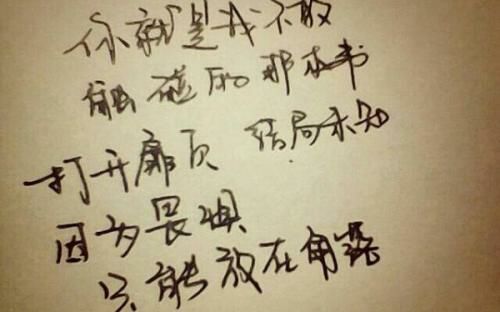 你就是我不敢
触碰的那本书
打开扉页 结局未知
因为畏惧
只能放在角落